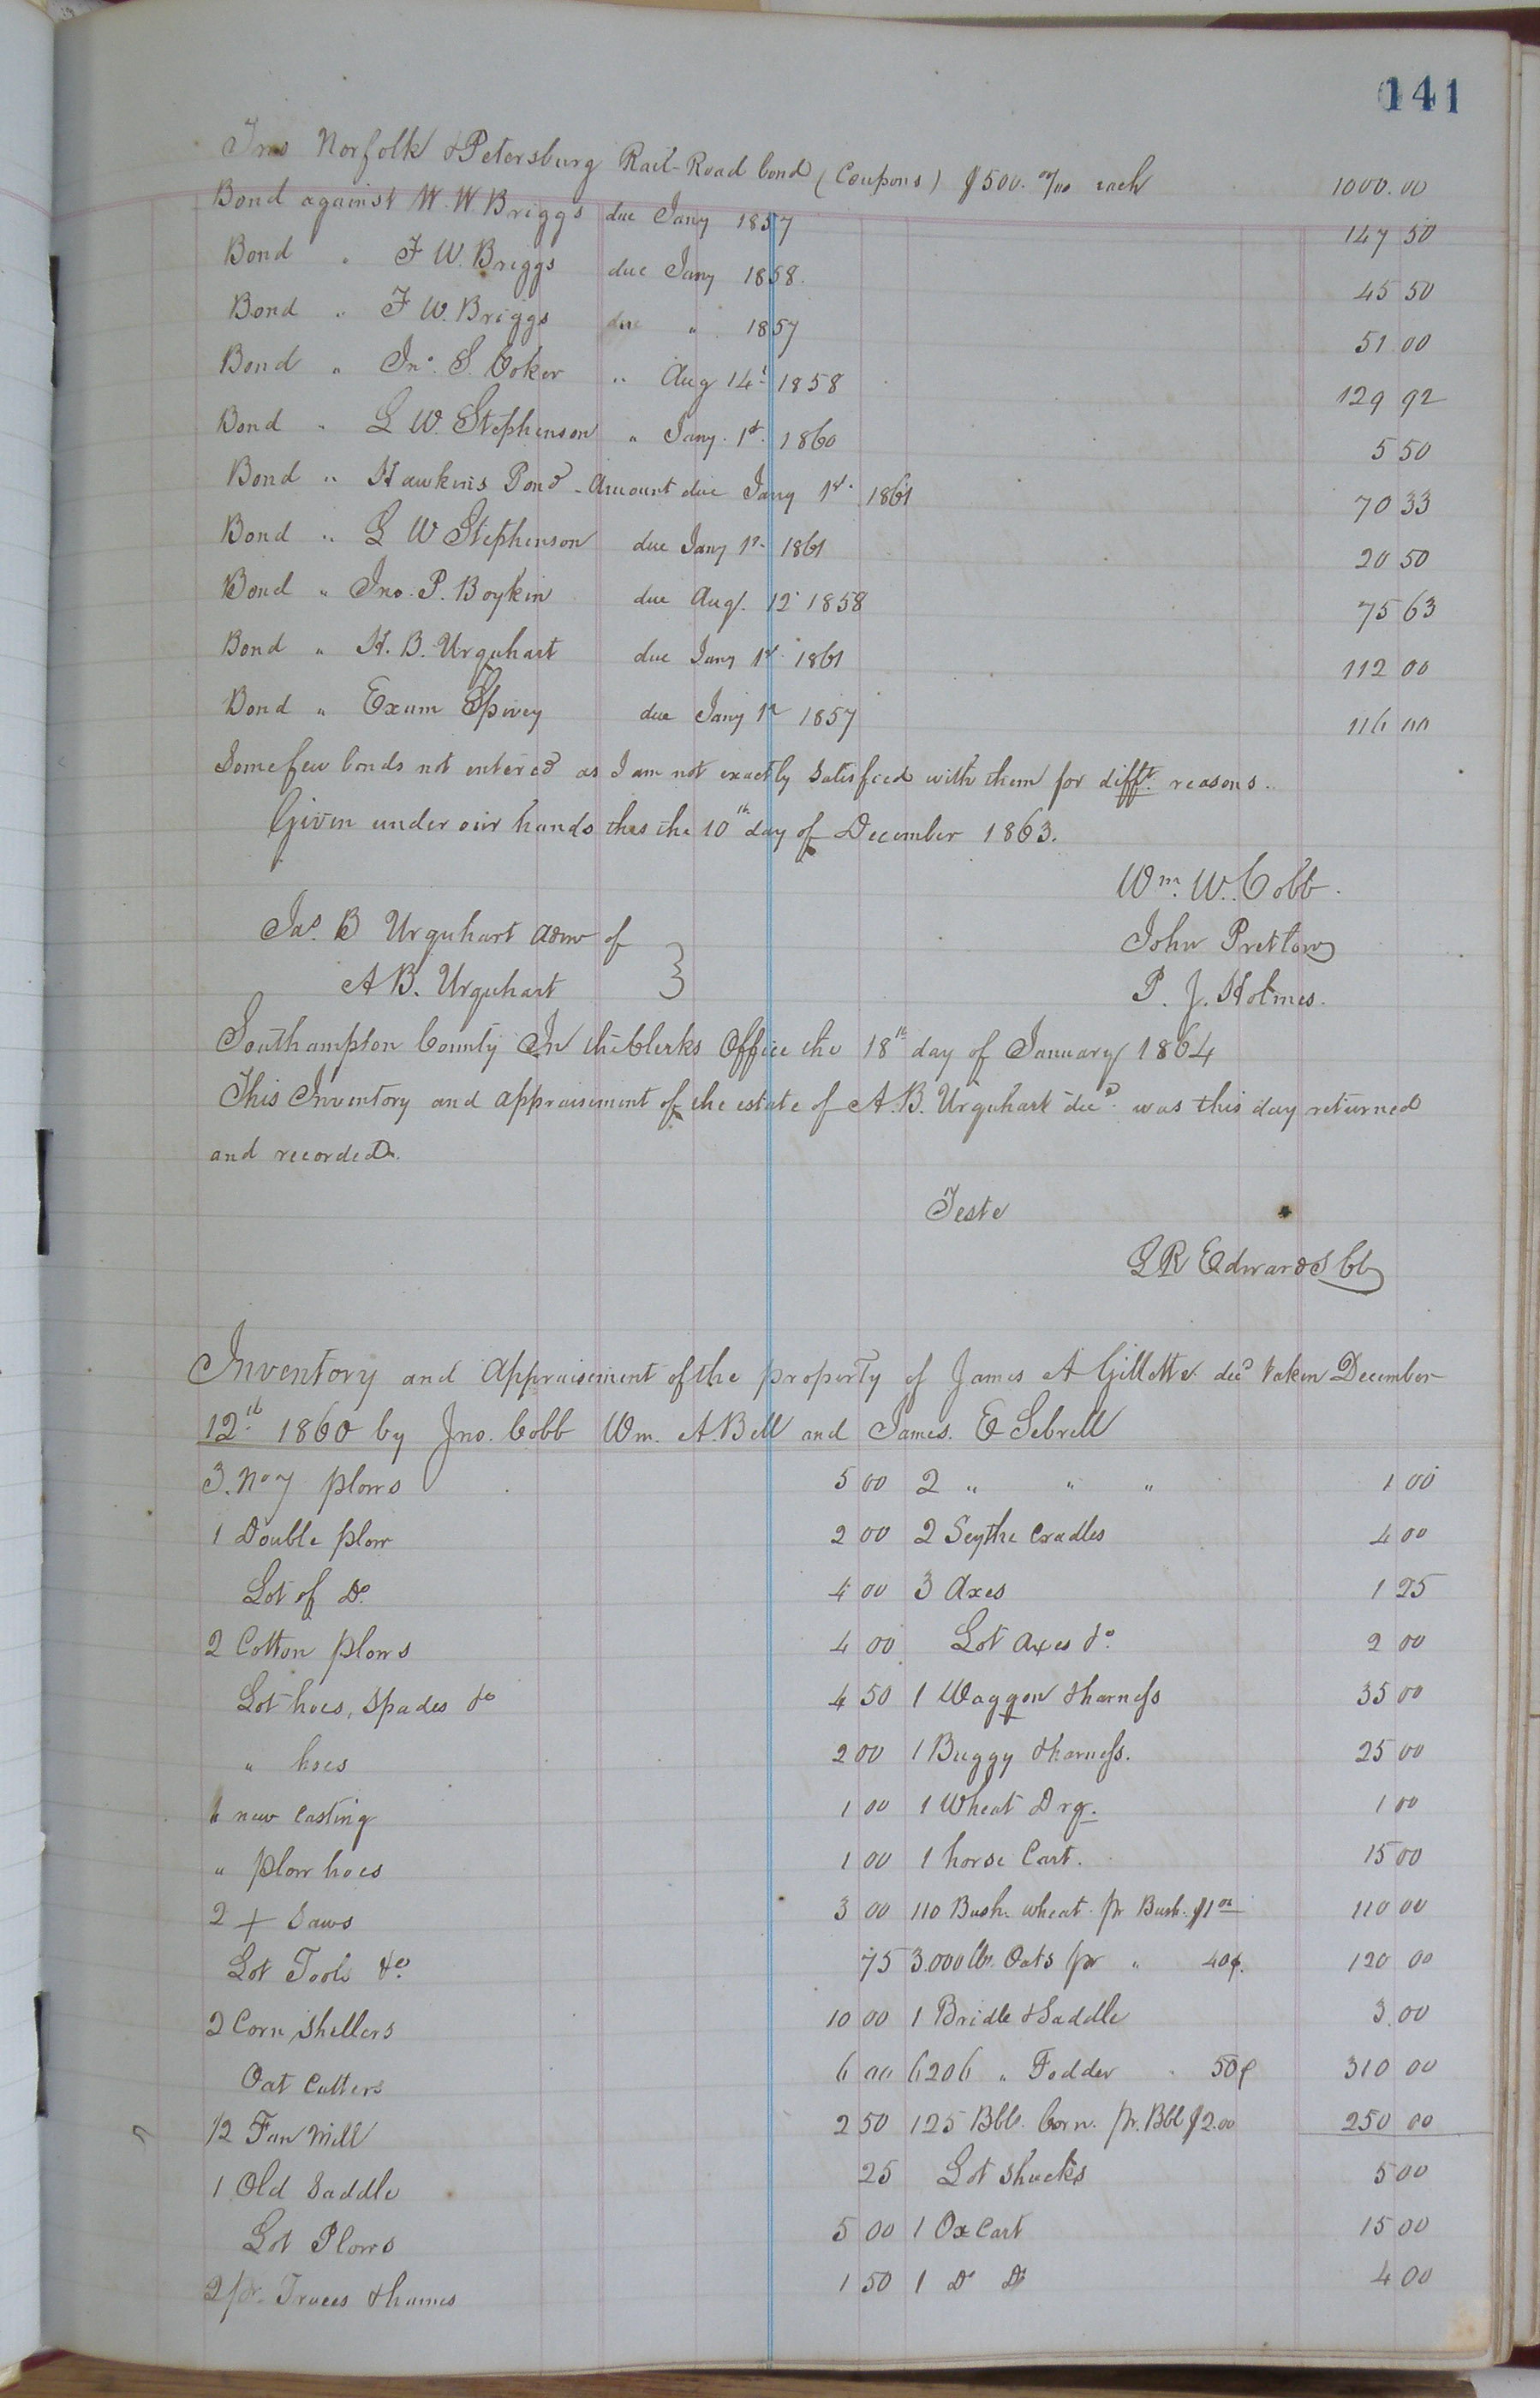 141
Two Norfolk & Petersburg Rail-Road bond (Coupons) $500. 00/100 each 1000.00
Bond against W. W. Briggs due Jany 1857 147 50
Bond " F W. Briggs due Jany 1858. 45 50
Bond " F W. Briggs due " 1857 51 00
Bond " Jno. S. Coker " Aug 14t 1858 129 92
Bond " L W. Stephenson " Jany. 1st. 1860 5 50
Bond " Hawkins Pond - Amount due Jany 1st. 1861 70 33
Bond " L W Stephenson due Jany 1st 1861 20 50
Bond " Jno. P. Boykin due Augt. 12 1858 75 63
Bond " H. B. Urquhart due Jany 1st 1861 112 00
Bond " Exum Spivey due Jany 1st 1857 116 00
Some few bonds not entered as I am not exactly satisfied with them for difft. reasons.
Given under our hands this the 10th day of December 1863.
Wm. W. Cobb.
Jas. B Urquhart adm of John Pretlow
A B. Urquhart P. J. Holmes.
Southampton County In the Clerks Office the 18th day of January 1864
This Inventory and appraisement of the estate of A. B. Urquhart decd. was this day returned
and recorded.
Teste
L R Edwards Cl
Inventory and Appraisement of the property of James A Gillette decd taken December
12th. 1860 by Jno. Cobb Wm. A. Bell and James. E Sebrell
3. No 7 plows 5 00 2 " " " 1 00
1 Double plow 2 00 2 Scythe Cradles 4 00
Lot of Do. 4 00 3 Axes 1 25
2 Cotton plows 4 00 Lot Axes &c. 2 00
Lot hoes, Spades &c 4 50 1 Waggon & harness 35 00
" hoes 2 00 1 Buggy & harness. 25 00
" new casting 1 00 1 Wheat Drg. 1 00
" plow hoes 1 00 1 horse Cart. 15 00
2 + Saws 3 00 110 Bush. wheat pr Bush. $1 00 110 00
Lot Tools &c. 75 3.000 lbs. Oats pr " 40¢. 120 00
2 Corn Shellers 10 00 1 Bridle & Saddle 3.00
Oat Cutters 6 00 6206 " Fodder 50¢ 310 00
1/2 Fan Mill 2 50 125 Bbls. Corn. pr. Bbl $2.00 250 00
1 Old Saddle 25 Lot Shucks 5 00
Lot Plows 5 00 1 Ox Cart 15 00
2 pr. Traces & hames 1 50 1 Do Do 4 00